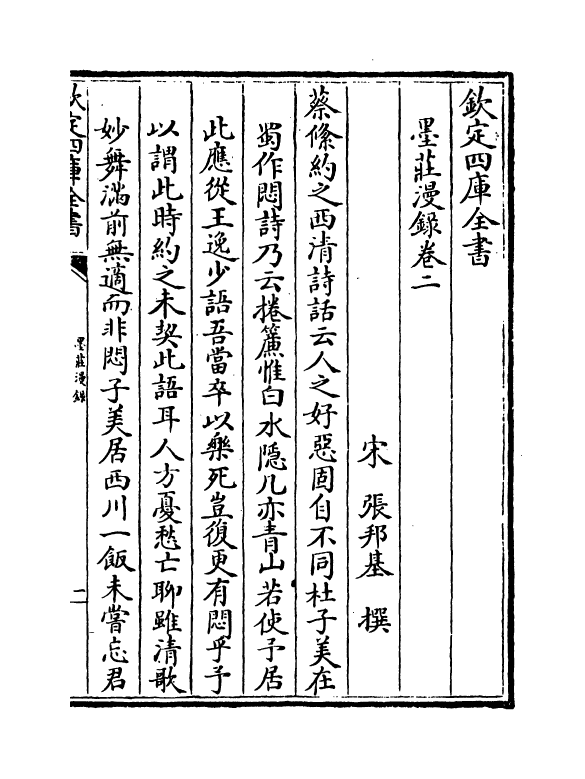 欽定四庫全書
墨莊漫錄卷二
宋 張邦基 撰
蔡絛約之西清詩話云人之好惡固自不同杜子美在
蜀作悶詩乃云捲簾惟白水隱几亦青山若使予居
此應從王逸少語吾當卒以樂死豈復更有悶乎予
以謂此時約之未契此語耳人方憂愁亡聊雖清歌
妙舞滿前無適而非悶子美居西川一飯未嘗忘君
欽定四庫全書
墨莊漫錄
二